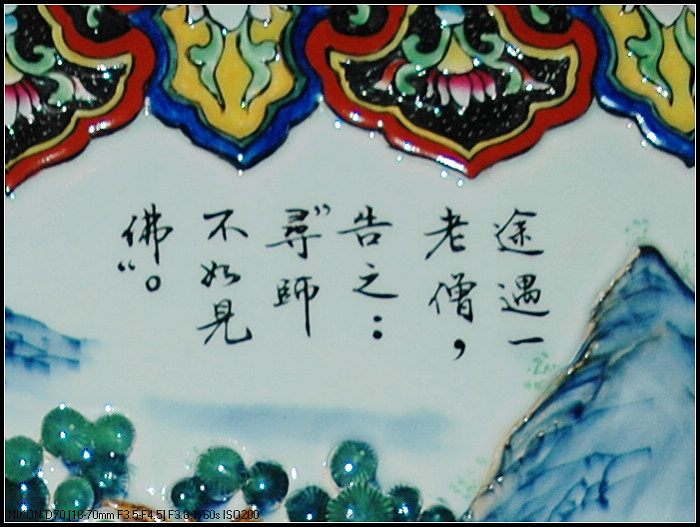 途遇一
老僧，
告之：
“尋師
不如見
佛”。
NIKON D70 [18-70mm F3.5-F4.5] F3.8 1/60s ISO200